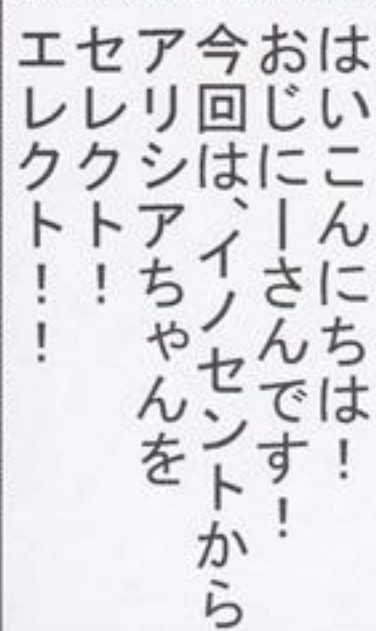 はいこんにちは！
おじにーさんです！
今回は、イノセントから
アリシアちゃんを
セレクト！
エレクト！！